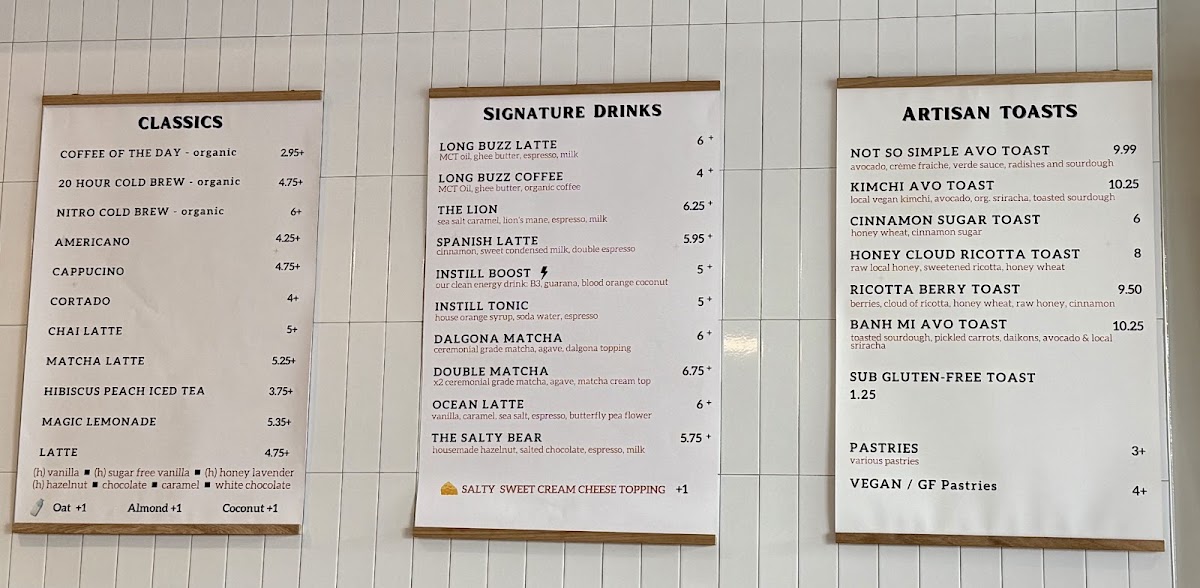 CLASSICS
COFFEE OF THE DAY - organic 2.95+
20 HOUR COLD BREW - organic 4.75+
NITRO COLD BREW - organic 6+
AMERICANO 4.25+
CAPPUCINO 4.75+
CORTADO 4+
CHAI LATTE 5+
MATCHA LATTE 5.25+
HIBISCUS PEACH ICED TEA 3.75+
MAGIC LEMONADE 5.35+
LATTE 4.75+
(h) vanilla ▪ (h) sugar free vanilla ▪ (h) honey lavender
(h) hazelnut ▪ chocolate ▪ caramel ▪ white chocolate
Oat +1 Almond +1 Coconut +1
SIGNATURE DRINKS
LONG BUZZ LATTE 6 +
MCT oil, ghee butter, espresso, milk
LONG BUZZ COFFEE 4 +
MCT Oil, ghee butter, organic coffee
THE LION 6.25 +
sea salt caramel, lion's mane, espresso, milk
SPANISH LATTE 5.95 +
cinnamon, sweet condensed milk, double espresso
INSTILL BOOST 5 +
our clean energy drink: B3, guarana, blood orange coconut
INSTILL TONIC 5 +
house orange syrup, soda water, espresso
DALGONA MATCHA 6 +
ceremonial grade matcha, agave, dalgona topping
DOUBLE MATCHA 6.75 +
x2 ceremonial grade matcha, agave, matcha cream top
OCEAN LATTE 6 +
vanilla, caramel, sea salt, espresso, butterfly pea flower
THE SALTY BEAR 5.75 +
housemade hazelnut, salted chocolate, espresso, milk
SALTY SWEET CREAM CHEESE TOPPING +1
ARTISAN TOASTS
NOT SO SIMPLE AVO TOAST 9.99
avocado, crème fraiche, verde sauce, radishes and sourdough
KIMCHI AVO TOAST 10.25
local vegan kimchi, avocado, org. sriracha, toasted sourdough
CINNAMON SUGAR TOAST 6
honey wheat, cinnamon sugar
HONEY CLOUD RICOTTA TOAST 8
raw local honey, sweetened ricotta, honey wheat
RICOTTA BERRY TOAST 9.50
berries, cloud of ricotta, honey wheat, raw honey, cinnamon
BANH MI AVO TOAST 10.25
toasted sourdough, pickled carrots, daikons, avocado & local
sriracha
SUB GLUTEN-FREE TOAST
1.25
PASTRIES 3+
various pastries
VEGAN / GF Pastries 4+